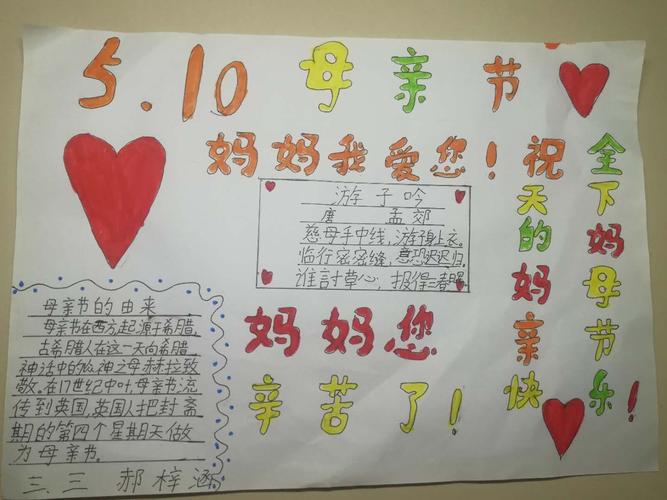 5.10 母亲节
妈妈我爱您！祝全
天下
的妈
妈母
亲节
快乐！
游子吟
唐 孟郊
慈母手中线，游子身上衣。
临行密密缝，意恐迟迟归。
谁言寸草心，报得三春晖。
妈妈您
辛苦了！
母亲节的由来
母亲节在西方起源于希腊，
古希腊人在这一天向希腊
神话中的众神之母赫拉致
敬。在17世纪中叶，母亲节流
传到英国，英国人把封斋
期的第四个星期天做
为母亲节。
三、三 郝梓涵